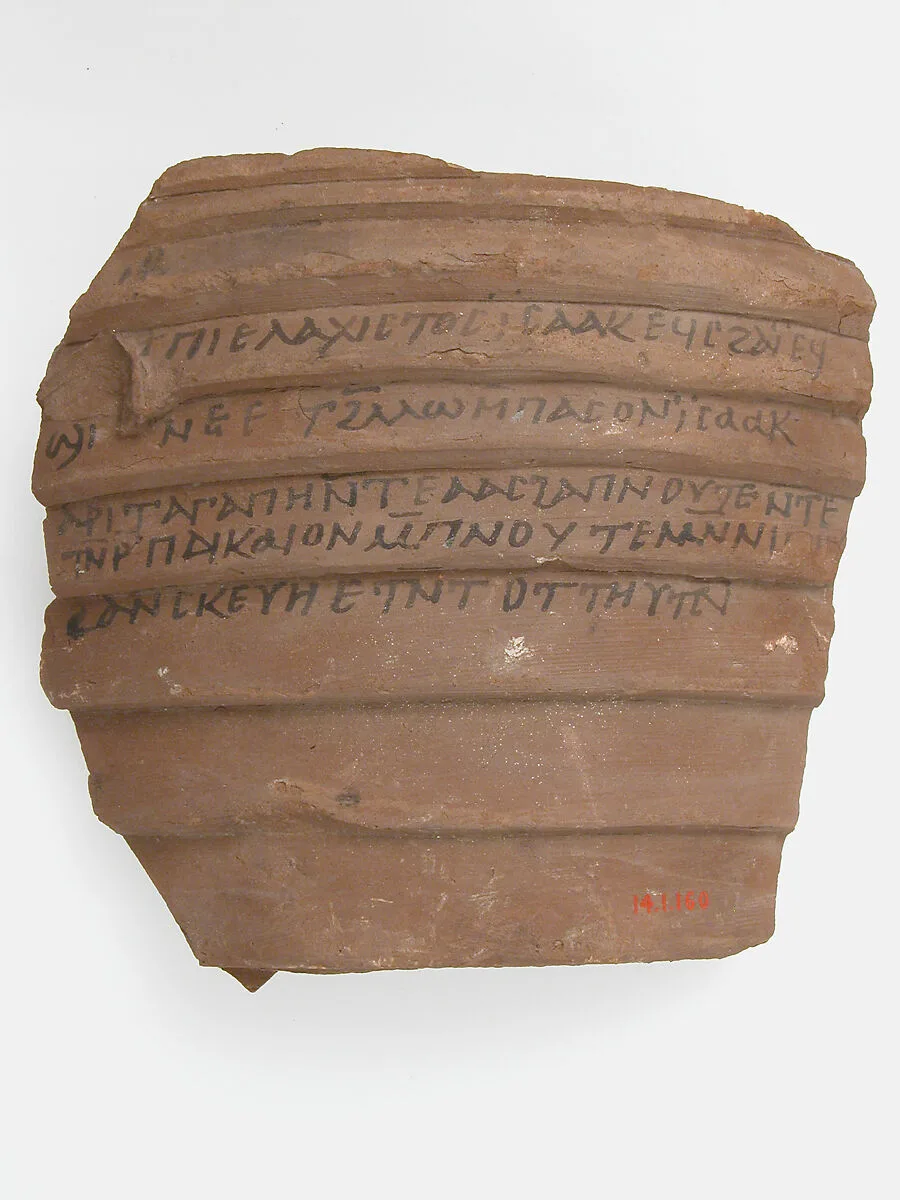 ⲡⲓⲉⲗⲁⲭⲓⲥⲧⲟⲥ ⲓⲥⲁⲁⲕ ⲉϥⲥϩⲁⲓ ⲉϥ
ϣⲓⲛⲉ ⲉ ⲧϩ̅ⲗⲗⲱ ⲙ̅ⲡⲁⲥⲟⲛ ⲓ̈ⲥⲁⲁⲕ
ⲁⲣⲓⲧⲁⲅⲁⲡⲏ ⲛ̅ⲧⲉⲁⲁⲥ ϩⲁⲡⲛⲟⲩⲧⲉ ⲛⲧⲉ
ⲧⲛ̅ⲣⲡⲇⲓⲕⲁⲓⲟⲛ ⲙ̅ⲡⲛⲟⲩⲧⲉ
ϩⲁⲛⲥⲕⲉⲩⲏ ⲉⲧⲛⲧⲟⲧⲧⲏⲩⲧⲛ̅
14.1.160